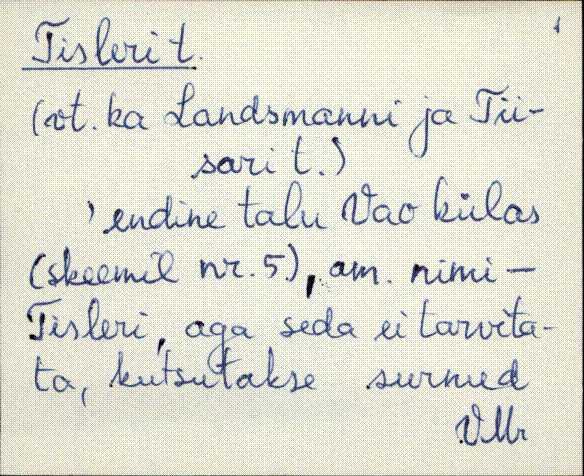 1
Tisleri t.
(vt. ka Landsmanni ja Tii-
sari t.)
'endine talu Vao külas
(skeemil nr. 5), am. nimi -
Tisleri, aga seda ei tarvita-
ta, kutsutakse surnud
VMr